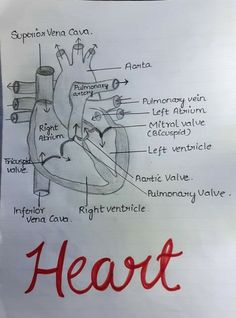 Superior Vena Cava.
Aorta
Pulmonary
artery
Pulmonary vein
Left Atrium
Mitral valve
(Bicuspid)
Right
Atrium
Left ventricle
Tricuspid
valve.
Aortic Valve.
Pulmonary Valve.
Inferior
Vena Cava.
Right ventricle.
Heart